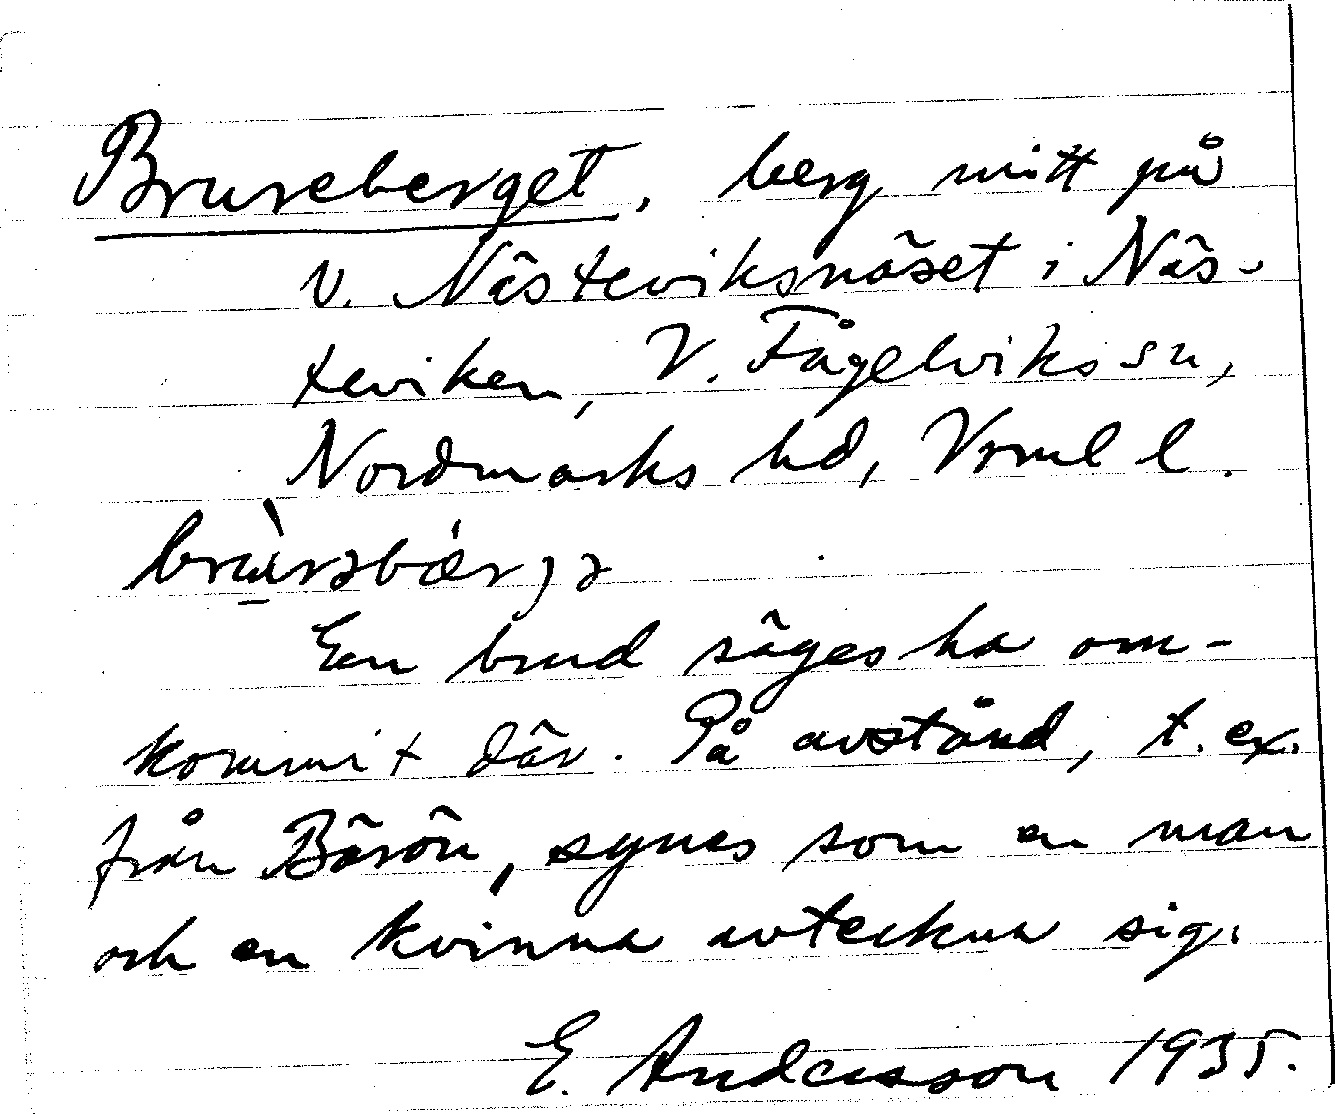 Brureberget, berg mitt på
v. Nästeviksnäset i Näs-
teviken, V. Fågelviks sn,
Nordmarks hd, Vrml l.
En brud säges ha om-
kommit där. På avstånd, t. ex.
från Bärön, synes som en man
och en kvinna avteckna sig.
E. Andersson 1935.